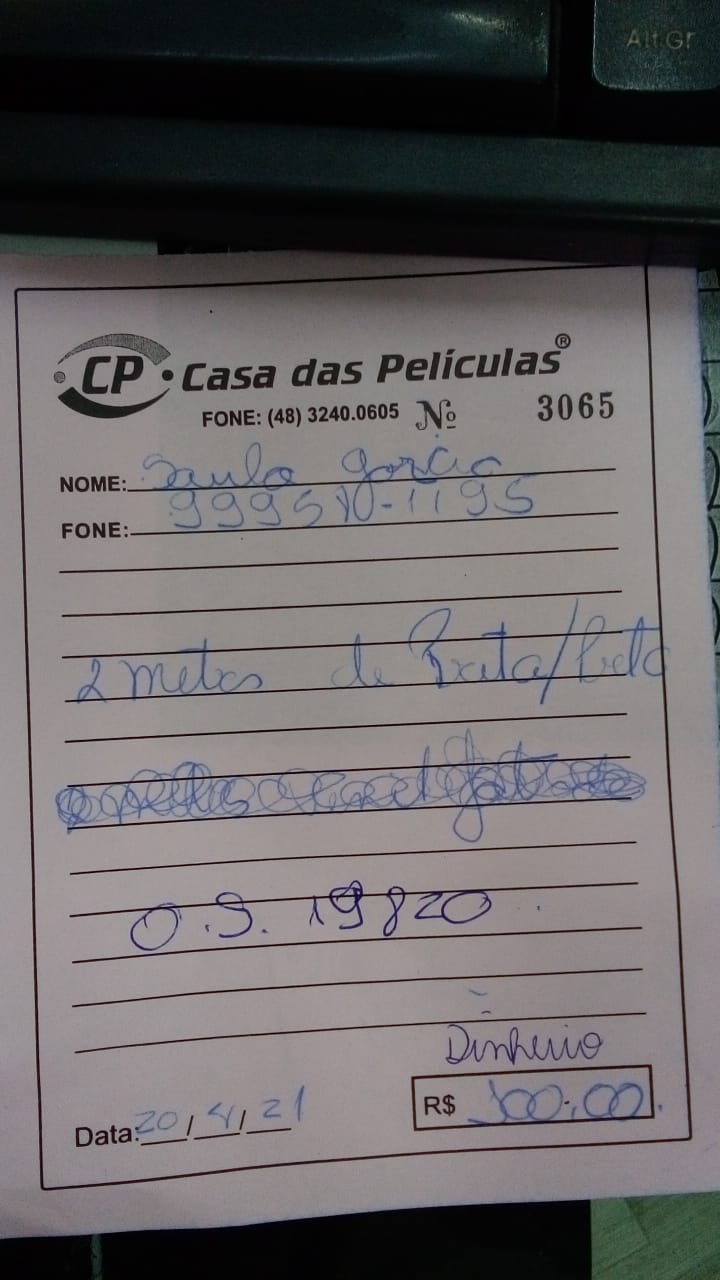 Alt Gr
CP Casa das Películas®
FONE: (48) 3240.0605 Nº 3065
NOME: Garcia
FONE:
2 metros de Prata/Preto
O.S. 19820
Dinheiro
Data: 20/4/21 R$ 00,00